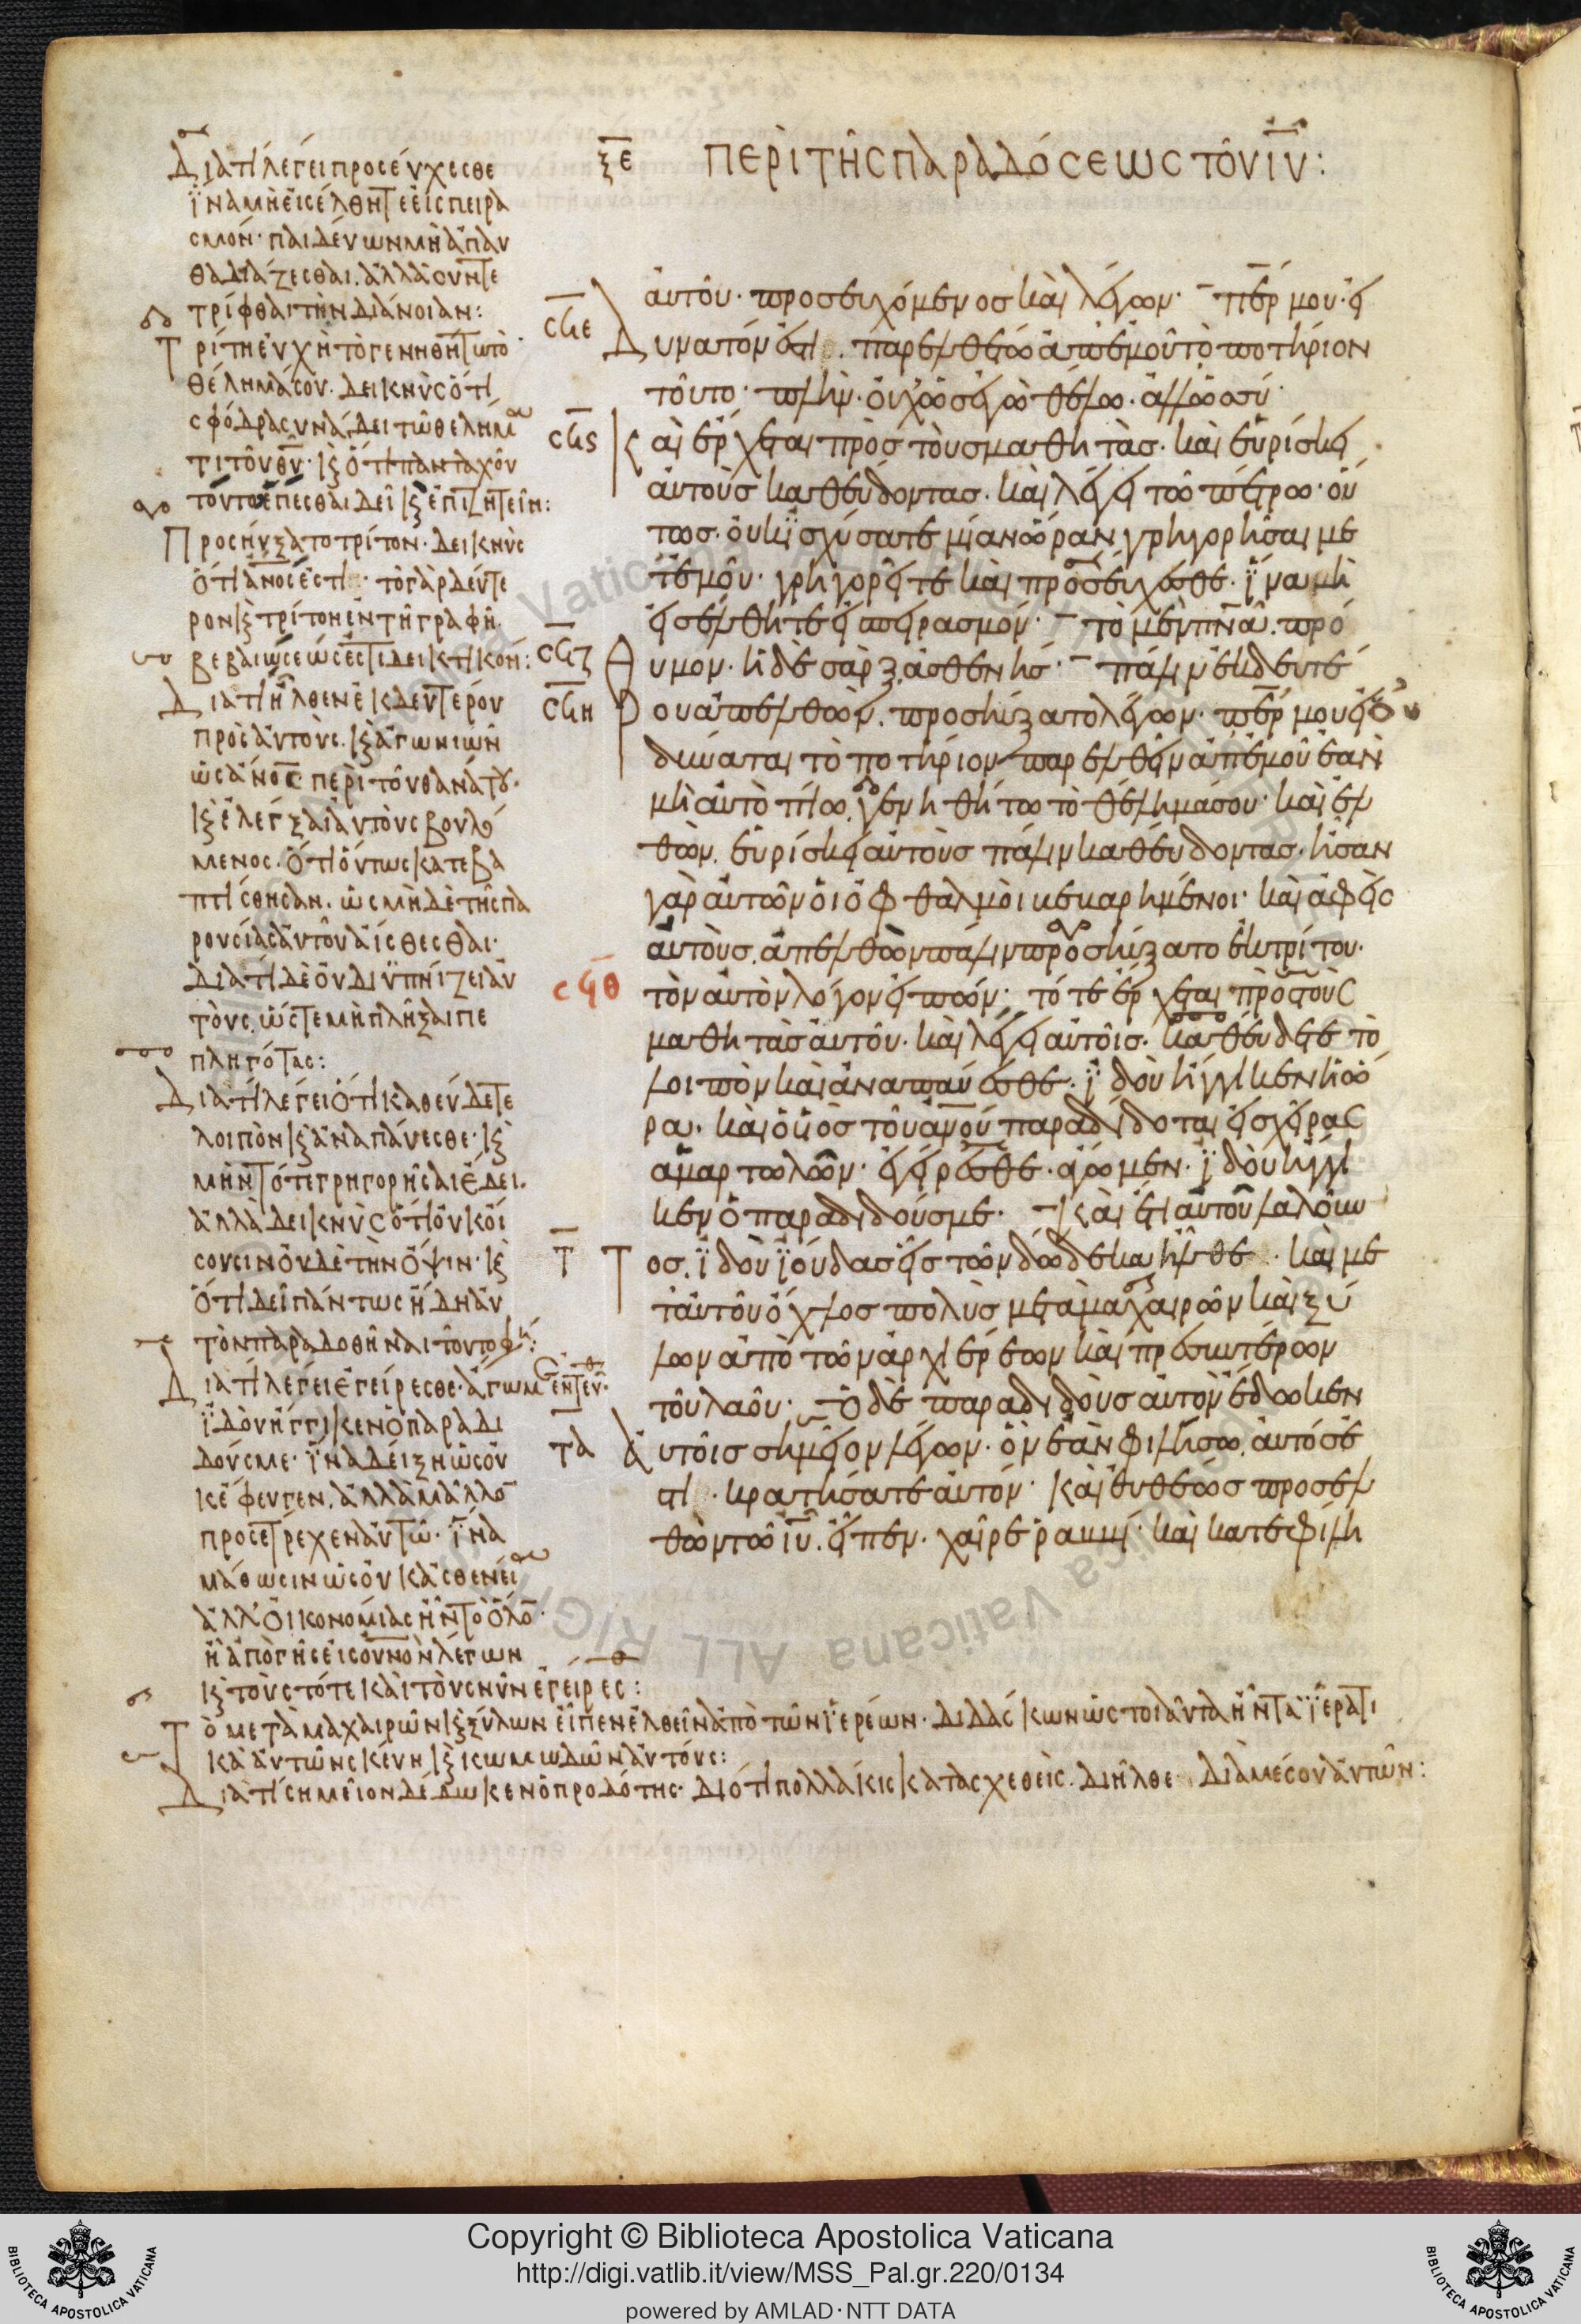 ξε ΠΕΡῚ ΤΗ͂Σ ΠΑΡΑΔΌΣΕΩΣ ΤΟΥ͂ ΙΥ͂:
Διατί λέγει προσεύχεσθε
ἵνα μὴ εἰσέλθητε εἰς πειρα
σμόν· παιδεύων μὴ
ἀλλὰ συντε
τρίφθαι τὴν διάνοιαν:
Τρίτη εὐχὴ τὸ γενηθήτω τὸ
θέλημά σου· δεικνὺς ὅτι
σφόδρα συνᾴδει τῶ θελήμα
τι τοῦ θυ· κ ὅτι πανταχοῦ
τούτω ἕπεσθαι δεῖ κ ἐπιζητεῖν:
Προσηύξατο τρίτον· δεικνὺς
ὅτι ανος ἐστι· τὸ γὰρ δεύτε
ρον κ τρίτον ἐν τῆ γραφῆ
βεβαιώσεώς ἐστι δεικτικόν:
Διατί ἦλθεν ἐκ δευτέρου
πρὸς αὐτοὺς· κ ἀγωνιῶν
ὡς ανος περὶ τοῦ θανάτου·
κ ἐλέγξαι αὐτοὺς βουλό
μενος· ὅτι ὄντως κατεβα
πτίσθησαν· ὡς μὴ δὲ τῆς πα
ρουσίας αὐτοῦ αἴσθεσθαι·
διατί δὲ οὐ διυπνίζει αὐ
τούς, ὥστε μὴ πλῆξαι πε
πληγότας:
Διατί λέγει ὅτι καθεύδετε
λοιπὸν κ ἀναπαύεσθε· κ
μὴν τότε γρηγορῆσαι ἔδει.
ἀλλὰ δεικνὺς ὅτι
οὐδὲ τὴν ὄψιν· κ
ὅτι δεῖ πάντως ἤδη αὐ
τὸν παραδοθῆναι τοῦτο φη:
Διατί λέγει ἐγείρεσθε· ἄγωμεν ἐντεῦθεν
ἰδοὺ ἤγγικεν ὁ παραδι
δούς με· ἵνα δείξη ὡς οὐ
κ ἔφευγεν. ἀλλὰ μᾶλλο
προσέτρεχεν αὐτῶ· ἵνα
μάθωσιν ὡς οὐκ ἀσθενείας
ἀλλ' οἰκονομίας ἦν τὸ ὅλο·
ἢ ἀπὸ γῆς εἰς ουνον λέγων
κ τοὺς τότε καὶ τοὺς νῦν ἐγείρεσθε:
Τὸ μετὰ μαχαιρῶν κ ξύλων εἶπεν ἐλθεῖν ἀπὸ τῶν ἱερέων· διδάσκων ὡς τοιαῦτα ἦν τὰ ἱερατι
κὰ αὐτῶν σκεύη κ κωμωδῶν αὐτούς:
Διατί σημεῖον δέδωκεν ὁ προδότης· διότι πολλάκις κατασχεθεὶς. διῆλθε διὰ μέσου αὐτῶν:
αὐτοῦ· προσευχόμενος καὶ λέγων· περ μου· εἰ
σϟε Δυνατόν ἐστι. παρελθέτω ἀπ' ἐμοῦ τὸ ποτήριον
τοῦτο· πλὴν οὐχ ὡς ἐγὼ θέλω. ἀλλ' ὡς σύ·
σϟς Καὶ ἔρχεται πρὸς τοὺς μαθητὰς· καὶ εὑρίσκει
αὐτοὺς καθεύδοντας. καὶ λέγει τῶ πέτρω· οὕ
τως. οὐκ ἰσχύσατε μίαν ὥραν γρηγορῆσαι με
τ' ἐμοῦ· γρηγορεῖτε καὶ προσεύχεσθε. ἵνα μὴ
εἰσέλθητε εἰς πειρασμόν· τὸ μὲν πνα. πρό
σϟζ Θυμον. ἡ δὲ σὰρξ ἀσθενής· πάλιν ἐκ δευτέ
σϟη Ρου ἀπελθὼν. προσηύξατο λέγων· περ μου εἰ οὐ
δύναται τὸ ποτήριον παρελθεῖν ἀπ' ἐμοῦ ἐὰν
μὴ αὐτὸ πίω, γενηθήτω τὸ θέλημά σου· καὶ ἐλ
θὼν. εὑρίσκει αὐτοὺς πάλιν καθεύδοντας· ἦσαν
γὰρ αὐτῶν οἱ ὀφθαλμοὶ κεκαρημένοι· καὶ ἀφεὶς
αὐτοὺς. ἀπελθὼν πάλιν προσηύξατο ἐκ τρίτου·
σϟθ τὸν αὐτὸν λόγον εἰπών· τότε ἔρχεται πρὸς τοὺς
μαθητὰς αὐτοῦ· καὶ λέγει αὐτοῖς· καθεύδετε τὸ
λοιπὸν καὶ ἀναπαύεσθε. ἰδοὺ ἤγγικεν ἡ ὥ
ρα. καὶ ὁ υἱὸς τοῦ ανου παραδίδοται εἰς χεῖρας
ἁμαρτωλῶν· ἐγείρεσθε. ἄγωμεν. ἰδοὺ ἤγγι
κεν ὁ παραδιδούς με· Καὶ ἔτι αὐτοῦ λαλοῦν
τ Τος. ἰδοὺ ἰούδας εἷς τῶν δώδεκα ἦλθε. καὶ με
τ' αὐτοῦ ὄχλος πολὺς μετὰ μαχαιρῶν καὶ ξύ
λων ἀπὸ τῶν ἀρχιερέων καὶ πρεσβυτέρων
τοῦ λαοῦ· Ὁ δὲ παραδιδοὺς αὐτὸν ἔδωκεν
τα Αὐτοῖς σημεῖον λέγων· ὃν ἐὰν φιλήσω, αὐτός ἐ
στι. κρατήσατε αὐτόν· Καὶ εὐθέως προσελ
θὼν τῶ ιυ. εἶπεν. χαῖρε ῥαββί· καὶ κατεφίλη
Copyright © Biblioteca Apostolica Vaticana
http://digi.vatlib.it/view/MSS_Pal.gr.220/0134
powered by AMLAD·NTT DATA
BIBLIOTECA APOSTOLICA VATICANA
BIBLIOTECA APOSTOLICA VATICANA